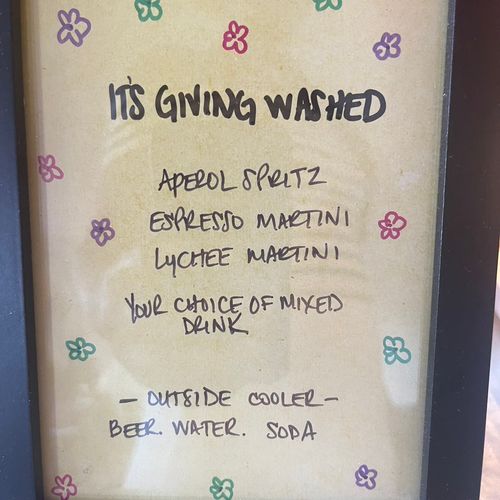 IT'S GIVING WASHED
APEROL SPRITZ
ESPRESSO MARTINI
LYCHEE MARTINI
YOUR CHOICE OF MIXED
DRINK
- OUTSIDE COOLER -
BEER. WATER. SODA